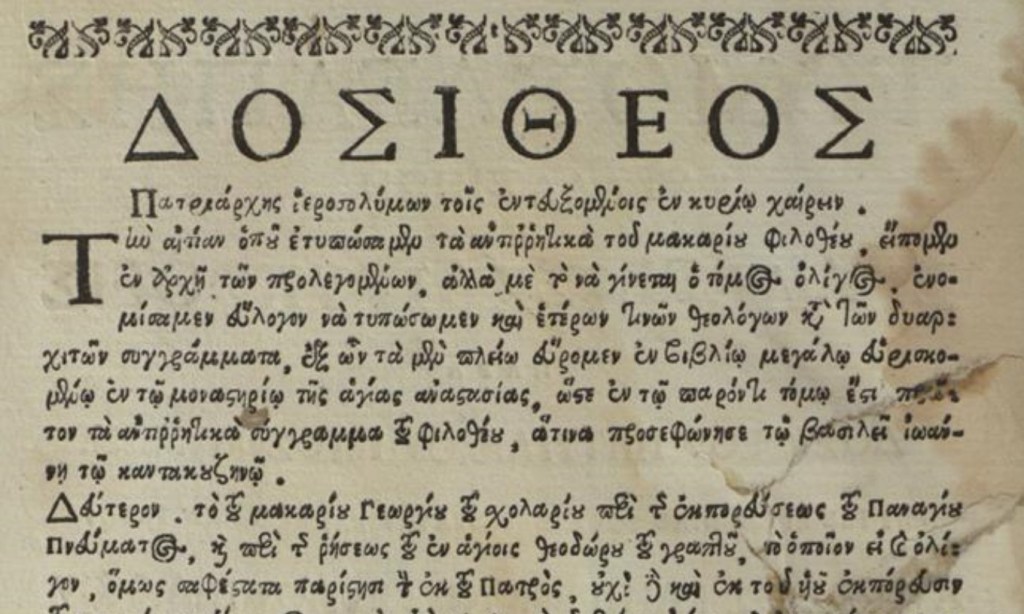 ΔΟΣΙΘΕΟΣ
Πατριάρχης ἱεροσολύμων τοῖς ἐντευξομένοις ἐν κυρίῳ χαίρειν .
Τὴν μὲν αἰτίαν ὁποῦ ἐτυπώσαμεν τὰ ἀντιῤῥητικὰ τοῦ μακαρίου Φιλοθέου, εἴπομεν
ἐν ἀρχῇ τῶν προλεγομένων, ἀλλὰ μὲ τὸ νὰ γίνεται ὁ τόμος ὀλίγος, ἐνο-
μίσαμεν εὔλογον νὰ τυπώσωμεν καὶ ἑτέρων τινῶν θεολόγων καὶ τῶν δυαρ-
χιτῶν συγγράμματα, ἐξ ὧν τὰ μὲν πλείω εὕρομεν ἐν βιβλίῳ μεγάλῳ εὑρισκο-
μένῳ ἐν τῷ μοναστηρίῳ τῆς ἁγίας ἀναστασίας, ὥστε ἐν τῷ παρόντι τόμῳ ἔστι πρῶ-
τον τὰ ἀντιῤῥητικὰ σύγγραμμα τοῦ Φιλοθέου, ἅτινα προσεφώνησε τῷ βασιλεῖ ἰωάν-
νῃ τῷ καντακουζηνῷ .
Δεύτερον . τὸ τοῦ μακαρίου Γεωργίου τοῦ σχολαρίου περὶ τῆς ἐκπορεύσεως τοῦ Παναγίου
Πνεύματος, καὶ περὶ τῆς ῥήσεως τοῦ ἐν ἁγίοις θεοδώρου τοῦ γραπτοῦ, τὸ ὁποῖον εἰ καὶ ὀλί-
γον, ὅμως σαφέστατα παρίστησι τὴν ἐκ τοῦ Πατρὸς, οὐχὶ δὲ καὶ ἐκ τοῦ υἱοῦ ἐκπόρευσιν